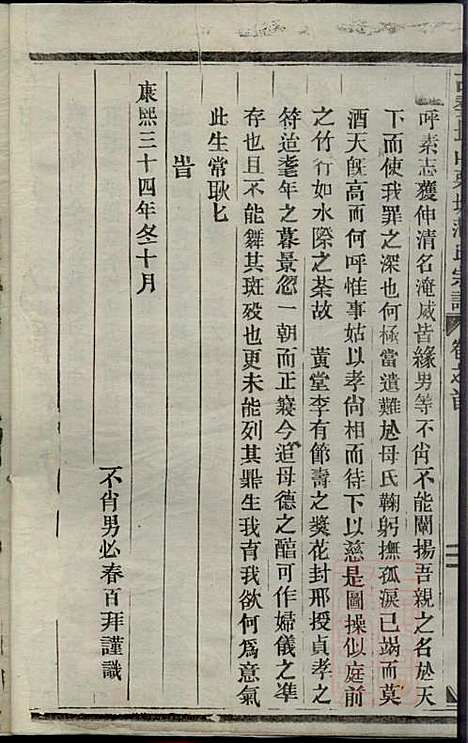 氏宗譜 卷之首
呼素志獲伸清名淹威皆緣男等不肖不能闡揚吾親之名於天
下而使我罪之深也何極當遺難於母氏鞠躬撫孤淚已竭而莫
酒天旣高而何呼惟事姑以孝尙相而待下以慈是圖操似庭前
之竹行如水際之荼故 黃堂李有節壽之奬花封邢授貞孝之
符迨耄年之暮景忽一朝而正寢今追母德之酷可作婦儀之準
存也且不能舞其斑歿也更未能列其鼎生我育我欲何爲意氣
此生常耿匕
旹
康熙三十四年冬十月
不肖男必春百拜謹識